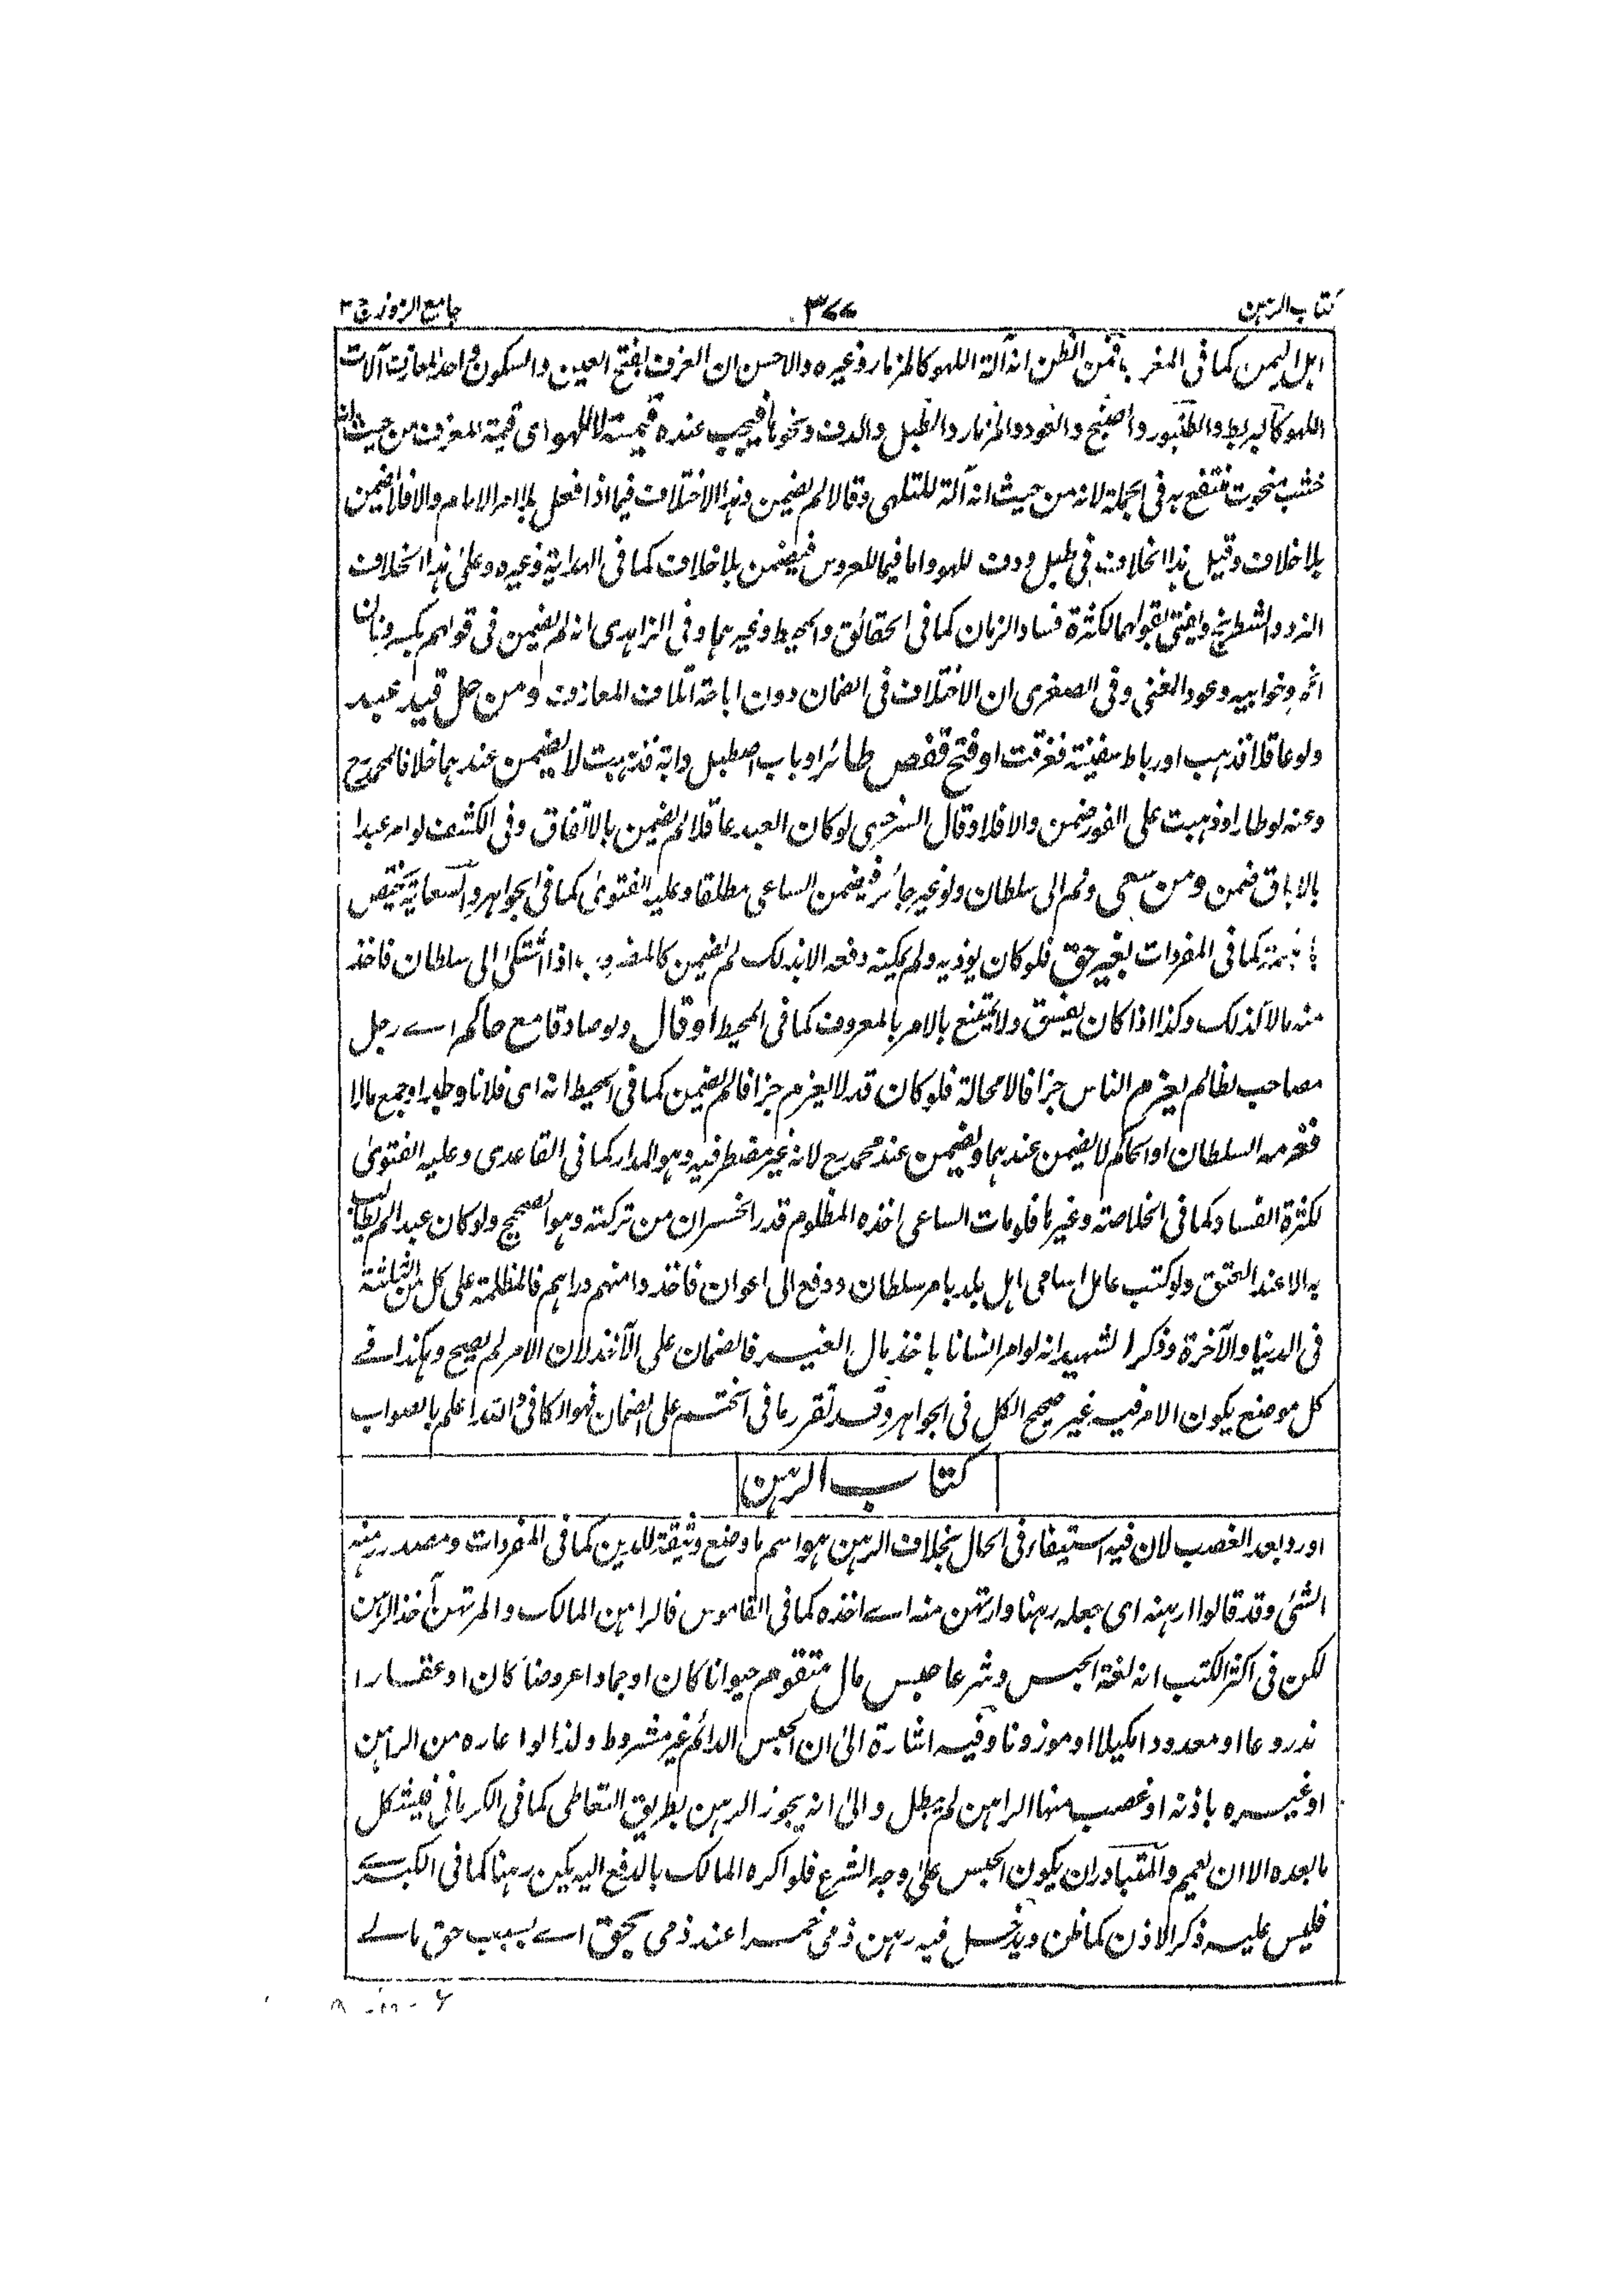 كتاب الرهن ٣٧٧ جامع الرموز ج ٣
اهل اليمن كما فى المغرب فمن الظن انه آلة اللهو كالمزمار وغيره والاحسن ان العزف بفتح العين والسكون احد المعازف آلات
اللهو كالبربط والطنبور والصنج والعود والمزمار والطبل والدف ونحوها فيجب عنده قيمته لا للهو اى قيمة المعزف من حيث انه
خشب منحوت منتفع به فى الجملة لانه من حيث انه آلة للتلهى وقالا لم يضمن وهذا الاختلاف فيما اذا فعل بلا امر الامام والا فلا يضمن
بلا خلاف وقيل هذا الخلاف فى طبل ودف للهو واما فيما للعروس فيضمن بلا خلاف كما فى الهداية وغيره وعلى هذا الخلاف
النرد والشطرنج ويفتى بقولهما لكثرة فساد الزمان كما فى الحقائق والمحيط وغيرهما وفى الزاهدى انه لم يضمن فى قولهم بكسر
ونحوابيه وعود المغنى وفى الصغرى ان الاختلاف فى الضمان دون اباحة اتلاف المعازف ومن حل قيد عبد
ولو عاقلا فذهب او رباط سفينة فغرقت او فتح قفص طائر او باب اصطبل دابة فذهبت لا يضمن عندهما خلافا لمحمد رح
وعنه لو طار او ذهبت على الفور ضمن والا فلا وقال السرخسى لو كان العبد عاقلا لم يضمن بالاتفاق وفى الكشف لو امر عبدا
بالاباق ضمن ومن سعى ونم الى سلطان ولو غير جائر فيضمن الساعى مطلقا وعليه الفتوى كما فى الجواهر والسعاية يختص
بالنميمة كما فى المفردات بغير حق فلو كان يوذيه ولم يمكنه دفعه الا بذلك لم يضمن كالمضروب اذا اشتكى الى سلطان فاخذ
منه مالا كذلك وكذا اذا كان يفسق ولا يمتنع بالامر بالمعروف كما فى المحيط او قال ولو صادقا مع حاكم اے رجل
مصاحب لظالم يغرم الناس جزافا لا محالة فلو كان قد لا يغرم جزافا لم يضمن كما فى المحيط انه اى فلانا وجد او جمع مالا
فغرمه السلطان او الحاكم لا يضمن عندهما ويضمن عند محمد رح لانه غير مضطر فيه وهو المدار كما فى القاعدى وعليه الفتوى
لكثرة الفساد كما فى الخلاصة وغيرها فلو مات الساعى اخذه المظلوم قدر الخسران من تركته وهو الصحيح ولو كان عبدا لم يطالب
به الا عند العتق ولو كتب عامل اسامى اهل بلد بامر سلطان ودفع الى اعوان فاخذوا منهم دراهم فالمظلمة على كل من الثلثة
فى الدنيا والآخرة وذكر الشهيد انه لو امر انسانا باخذ مال الغير فالضمان على الآخذ لان الامر لم يصح وهكذا فے
كل موضع يكون الامر فيه غير صحيح الكل فى الجواهر وقد تقرر ما فى الختم على الضمان فهو الكافى والله اعلم بالصواب
كتاب الرهن
اورد بعد الغصب لان فيه استيفاء فى الحال بخلاف الرهن هو اسم ما وضع وثيقة للدين كما فى المفردات ومصدر رهنه
الشئ وقد قالوا ارهنه اى جعله رهنا وارتهن منه اے اخذه كما فى القاموس فالراهن المالك والمرتهن آخذ الرهن
لكن فى اكثر الكتب انه لغة الحبس وشرعا حبس مال متقوم حيوانا كان او جمادا عروضا كان او عقارا
مذروعا او معدودا مكيلا او موزونا وفيه اشارة الى ان الحبس الدائم غير مشروط ولذا لو اعاره من الراهن
او غيره باذنه او غصب منها الراهن لم يبطل والى انه يجوز الرهن بطريق التعاطى كما فى الكرمانى فيشكل
ما بعده الا ان يعمم والمتبادر ان يكون الحبس على وجه الشرع فلو اكره المالك بالدفع اليه لم يكن رهنا كما فى الكبرے
فليس عليه ذكر الاذن كما ظن ويدخل فيه رهن ذمى خمرا عند ذمى بحق اے بسبب حق مالے